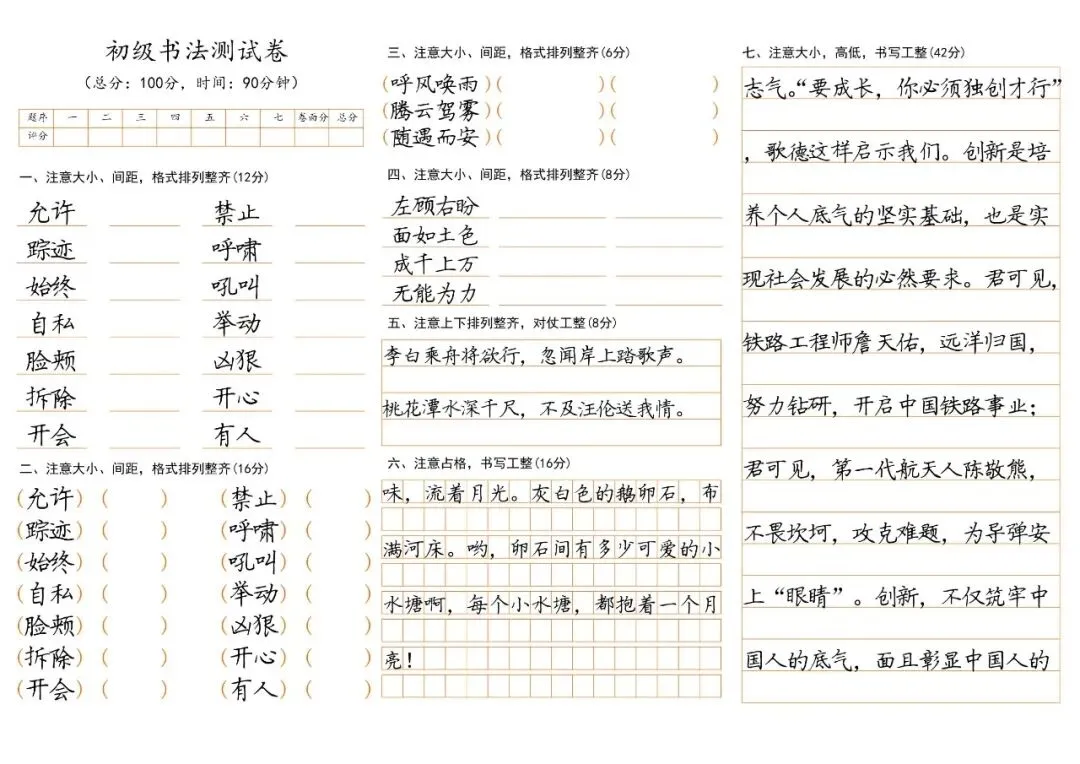 初级书法测试卷
（总分：100分，时间：90分钟）
题序 一 二 三 四 五 六 七 卷面分 总分
评分
一、注意大小、间距，格式排列整齐(12分)
允许 禁止
踪迹 呼啸
始终 吼叫
自私 举动
脸颊 凶狠
拆除 开心
开会 有人
二、注意大小、间距，格式排列整齐(16分)
(允许) ( ) (禁止) ( )
(踪迹) ( ) (呼啸) ( )
(始终) ( ) (吼叫) ( )
(自私) ( ) (举动) ( )
(脸颊) ( ) (凶狠) ( )
(拆除) ( ) (开心) ( )
(开会) ( ) (有人) ( )
三、注意大小、间距，格式排列整齐(6分)
(呼风唤雨) ( ) ( )
(腾云驾雾) ( ) ( )
(随遇而安) ( ) ( )
四、注意大小、间距，格式排列整齐(8分)
左顾右盼
面如土色
成千上万
无能为力
五、注意上下排列整齐，对仗工整(8分)
李白乘舟将欲行，忽闻岸上踏歌声。
桃花潭水深千尺，不及汪伦送我情。
六、注意占格，书写工整(16分)
味，流着月光。灰白色的鹅卵石，布
满河床。哟，卵石间有多少可爱的小
水塘啊，每个小水塘，都抱着一个月
亮！
七、注意大小，高低，书写工整(42分)
志气。“要成长，你必须独创才行”
，歌德这样启示我们。创新是培
养个人底气的坚实基础，也是实
现社会发展的必然要求。君可见，
铁路工程师詹天佑，远洋归国，
努力钻研，开启中国铁路事业；
君可见，第一代航天人陈敬熊，
不畏坎坷，攻克难题，为导弹安
上“眼睛”。创新，不仅筑牢中
国人的底气，面且彰显中国人的